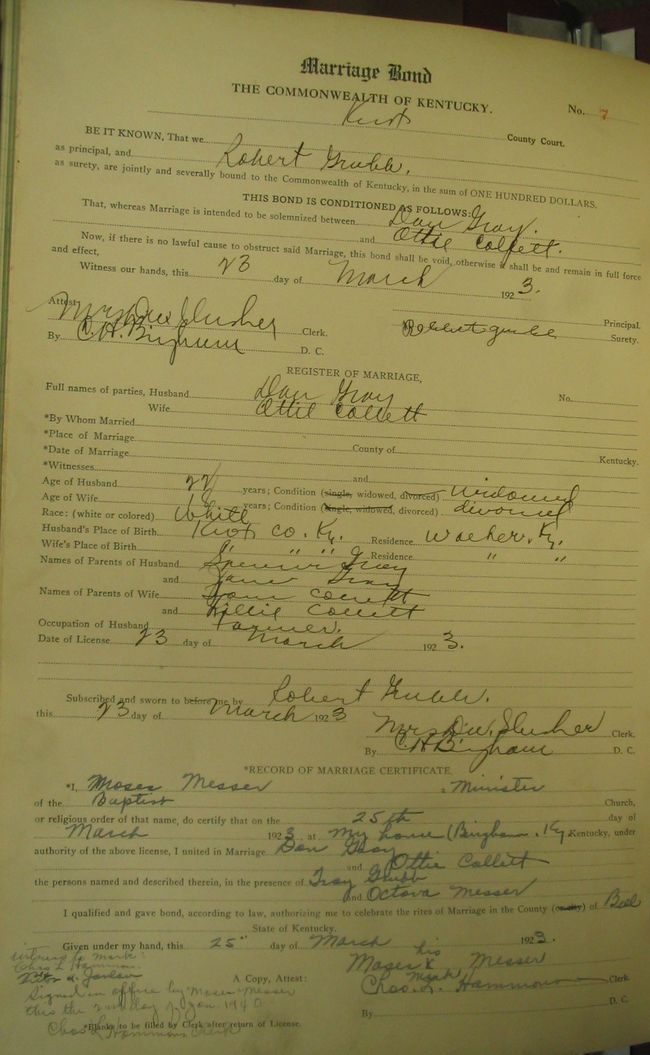 Marriage Bond
THE COMMONWEALTH OF KENTUCKY. No. 7
Knox County Court.
BE IT KNOWN, That we
as principal, and Robert Grubb.
as surety, are jointly and severally bound to the Commonwealth of Kentucky, in the sum of ONE HUNDRED DOLLARS.
THIS BOND IS CONDITIONED AS FOLLOWS:
That, whereas Marriage is intended to be solemnized between Dan Gray.
and Ottie Collett.
Now, if there is no lawful cause to obstruct said Marriage, this bond shall be void, otherwise it shall be and remain in full force
and effect,
Witness our hands, this 23 day of March 1923.
Attest Principal.
Mrs. Slusher Clerk. Robert Grubb Surety.
By C. H. Bingham D. C.
REGISTER OF MARRIAGE,
Full names of parties, Husband Dan Gray No.
Wife Ottie Collett
*By Whom Married
*Place of Marriage County of Kentucky.
*Date of Marriage
*Witnesses and
Age of Husband years; Condition (single, widowed, divorced) widowed
Age of Wife years; Condition (single, widowed, divorced) divorced
Race: (white or colored) White
Husband's Place of Birth Knox Co. Ky. Residence Ky.
Wife's Place of Birth " " " Residence " "
Names of Parents of Husband Gray
and Jane Gray
Names of Parents of Wife Collett
and Collett
Occupation of Husband Farmer.
Date of License 23 day of March 1923.
Subscribed and sworn to before me by Robert Grubb.
this 23 day of March 1923
Mrs. Slusher Clerk.
By C H Bingham D. C.
*RECORD OF MARRIAGE CERTIFICATE.
*I, Moses Messer a Minister
of the Baptist Church,
or religious order of that name, do certify that on the 25th day of
March 1923 at My home (Bingham. Ky. Kentucky, under
authority of the above license, I united in Marriage Dan Gray
and Ottie Collett
the persons named and described therein, in the presence of Grubb
and Octava Messer
I qualified and gave bond, according to law, authorizing me to celebrate the rites of Marriage in the County (or city) of Bell
State of Kentucky.
Given under my hand, this 25" day of March 1923.
witness to mark: his
Chas L Hammons Moses X Messer
mark
A Copy, Attest: Chas. L. Hammons Clerk
Signed in office by Moses Messer
this the 2nd day of Jan 1940
By D. C.
*Blanks to be filled by Clerk after return of License.
Chas L Hammons Clerk